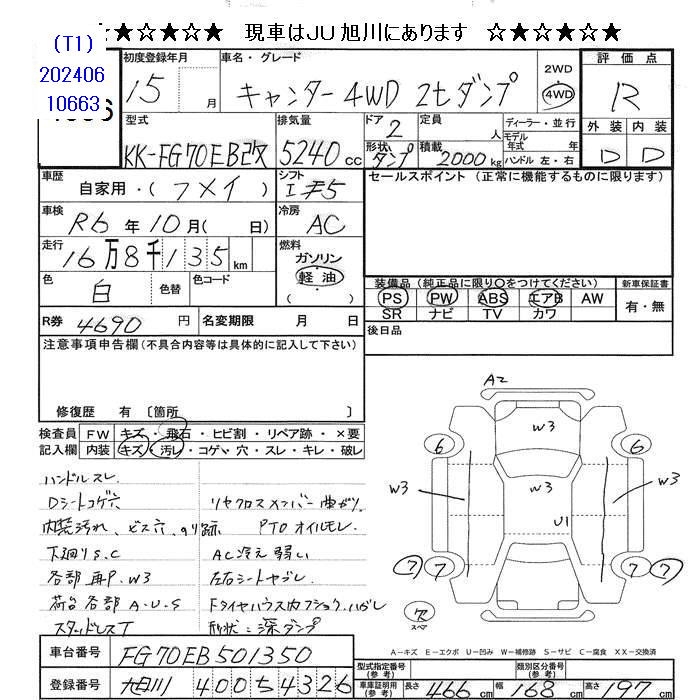 ★☆★☆★☆★ 現車はJU旭川にあります ☆★☆★☆★
(T1)
202406
10663
初度登録年月
15 月
車名・グレード
キャンター 4WD 2tダンプ
2WD
4WD
評価点
R
外装 内装
D D
型式
KK-FG70EB改
排気量
5240 cc
ドア
2
形状
ダンプ
定員
人
積載
2000 kg
ディーラー・並行
モデル年式 年式
ハンドル 左・右
車歴
自家用・(フメイ)
シフト
I チ5
セールスポイント (正常に機能するものに限ります)
車検
R6年10月( 日)
冷房
AC
走行
16万8千135 km
燃料
ガソリン
軽油
( )
色
白
色替
色コード
装備品(純正品に限り○をつけてください)
新車保証書
PS PW ABS エアB AW
SR ナビ TV カワ
有・無
R券
4690 円
名変期限 月 日
後日品
注意事項申告欄(不具合内容等は具体的に記入して下さい)
修復歴 有 〔箇所 〕
検査員記入欄
FW キズ・飛石・ヒビ割・リペア跡・×要
内装 キズ・汚レ・コゲ・穴・スレ・キレ・破レ
ハンドルスレ
Dシートコゲ穴
内装汚れ、ビス穴、のり跡
下廻りS.C
各部再P.W3
荷台各部A.U.S
スタッドレスT
リヤクロスメンバー曲ガリ
PTOオイルモレ
AC冷え弱い
左右シートヤブレ
ドライヤハウス内フショク.ハガレ
形状:深ダンプ
A2
W3
6
6
W3
W3
W3
U1
7
7
7
7
ス
スペア
A-キズ E-エクボ U-凹み W-補修跡 S-サビ C-腐食 XX-交換済
車台番号
FG70EB501350
登録番号
旭川 400 ち 4326
型式指定番号(参考)
類別区分番号(参考)
車庫証明用(参考) 長さ 466 cm 幅 168 cm 高さ 197 cm